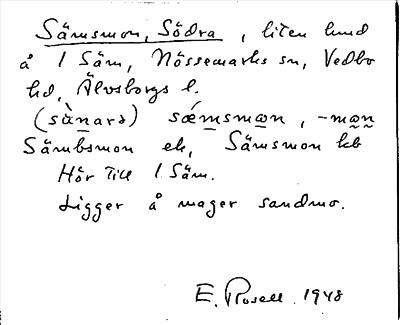 Sämsmon, Södra, liten lund
å 1 Säm, Nössemarks sn, Vedbo
hd, Älvsborgs l.
(sä̀nard) sǽmsmo̲n, -mo̰n̰
Sämbsmon ek, Sämsmon kb
Hör till 1 Säm.
Ligger å mager sandmo.
E. Rosell. 1948